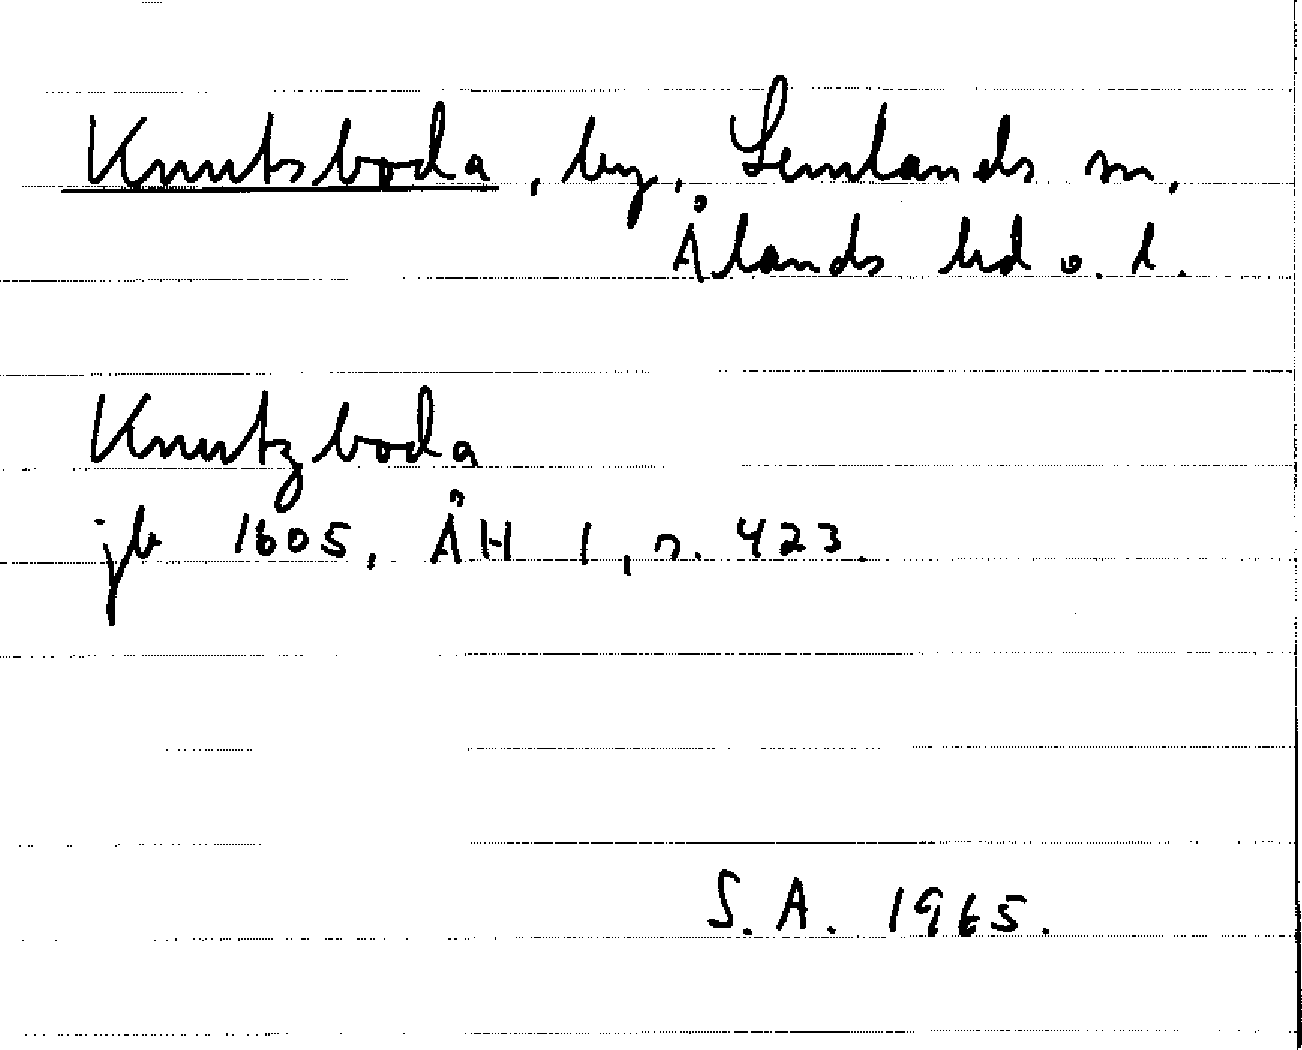 Knutsboda, by, Lemlands sn,
Ålands hd o. l.
Knutzboda
jb 1605, ÅH 1, s. 423.
S. A. 1965.